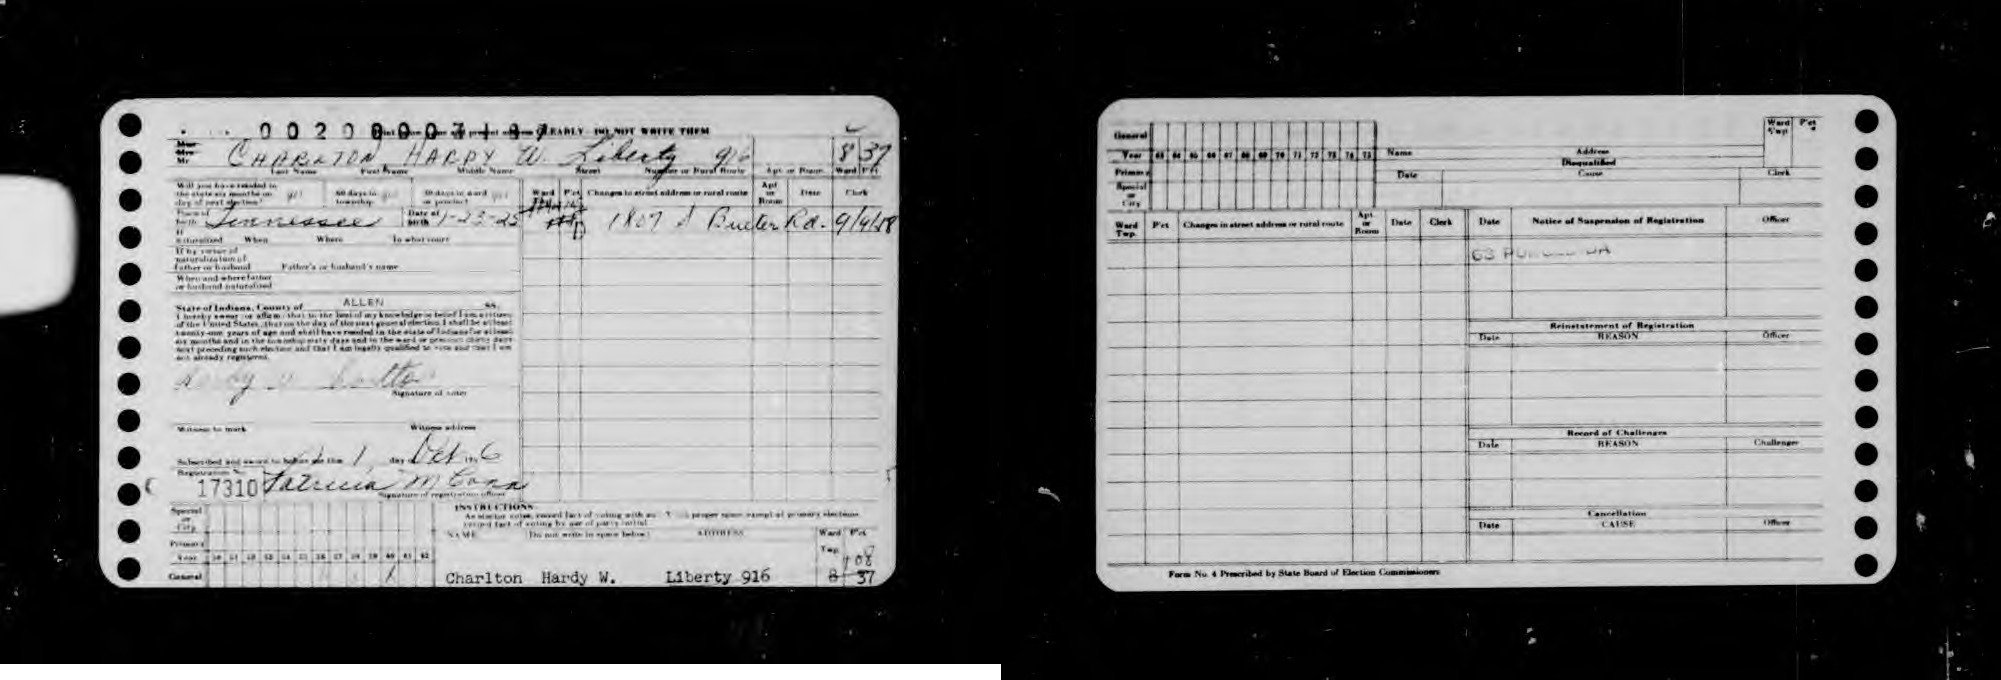 002000071
CLEARLY - DO NOT WRITE THEM
Mr CHARLTON, HARDY W. Liberty 916 8 37
Last Name First Name Middle Name Street Number or Rural Route Apt or Room Ward P'ct
Will you have resided in the state six months on day of next election? yes 60 days in township yes 30 days in ward or precinct yes
Ward P'ct Changes in street address or rural route Apt or Room Date Clerk
Place of birth Tennessee Date of birth 1-23-25
1807 S Bueter Rd. 9/9/58
If naturalized When Where In what court
If by virtue of naturalization of father or husband Father's or husband's name
When and where father or husband naturalized
State of Indiana, County of ALLEN ss.
I hereby swear or affirm, that to the best of my knowledge or belief I am a citizen
of the United States, that on the day of the next general election, I shall be at least
twenty-one years of age and shall have resided in the state of Indiana for at least
six months and in the township sixty days and in the ward or precinct thirty days
next preceding such election and that I am legally qualified to vote and that I am
not already registered.
Signature of voter
Witness to mark Witness address
Subscribed and sworn to before me this 1 day Oct 6
Registration No.
17310 Patricia M
Signature of registration officer
Special or City
Primary
Year 50 51 52 53 54 55 56 57 58 59 60 61 62
General X
INSTRUCTIONS
As elector votes, record fact of voting with an X in proper space except at primary elections
record fact of voting by use of party initial
NAME (Do not write in space below) ADDRESS Ward Twp. P'ct
108
Charlton Hardy W. Liberty 916 8 37
General
Year 63 64 65 66 67 68 69 70 71 72 73 74 75
Primary
Special or City
Name Address Ward Twp P'ct
Disqualified
Date Cause Clerk
Ward Twp. P'ct Changes in street address or rural route Apt or Room Date Clerk
Date Notice of Suspension of Registration Officer
63
Reinstatement of Registration
Date REASON Officer
Record of Challenges
Date REASON Challenger
Cancellation
Date CAUSE Officer
Form No. 4 Prescribed by State Board of Election Commissioners